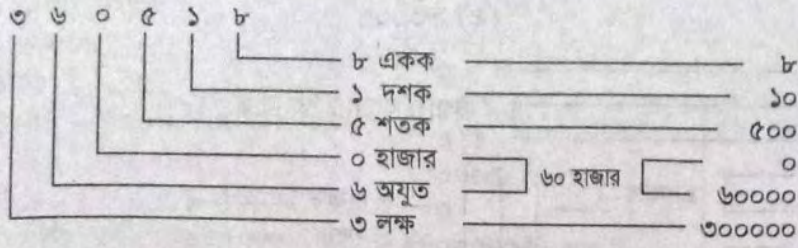 ৩ ৬ ০ ৫ ১ ৮
৮ একক ৮
১ দশক ১০
৫ শতক ৫০০
০ হাজার ০
৬০ হাজার
৬ অযুত ৬০০০০
৩ লক্ষ ৩০০০০০